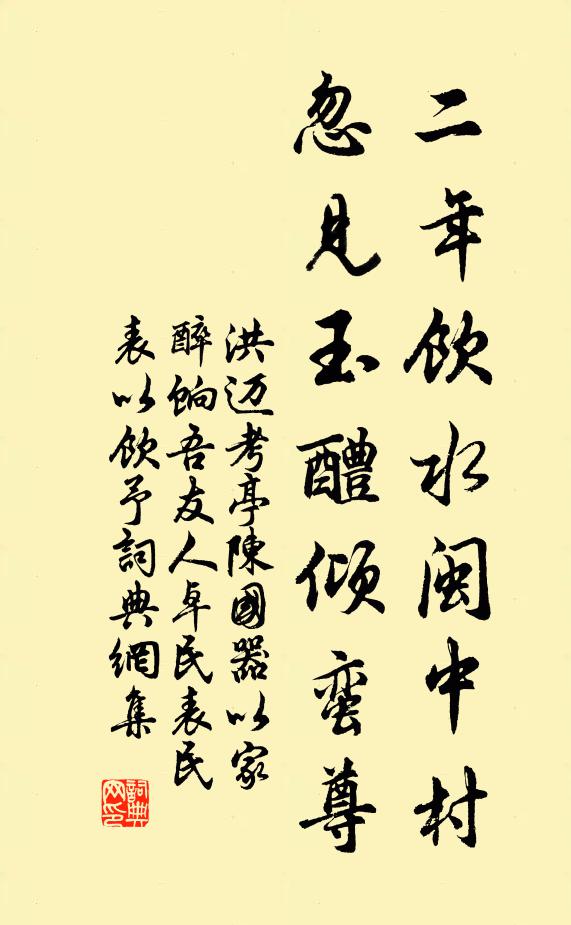 二年飲水閩中村
忽見玉醴傾蛮尊
洪迈考亭陳國器以家
醉餉吾友人卓民表民
表以飲予詞典網集
詞典网印